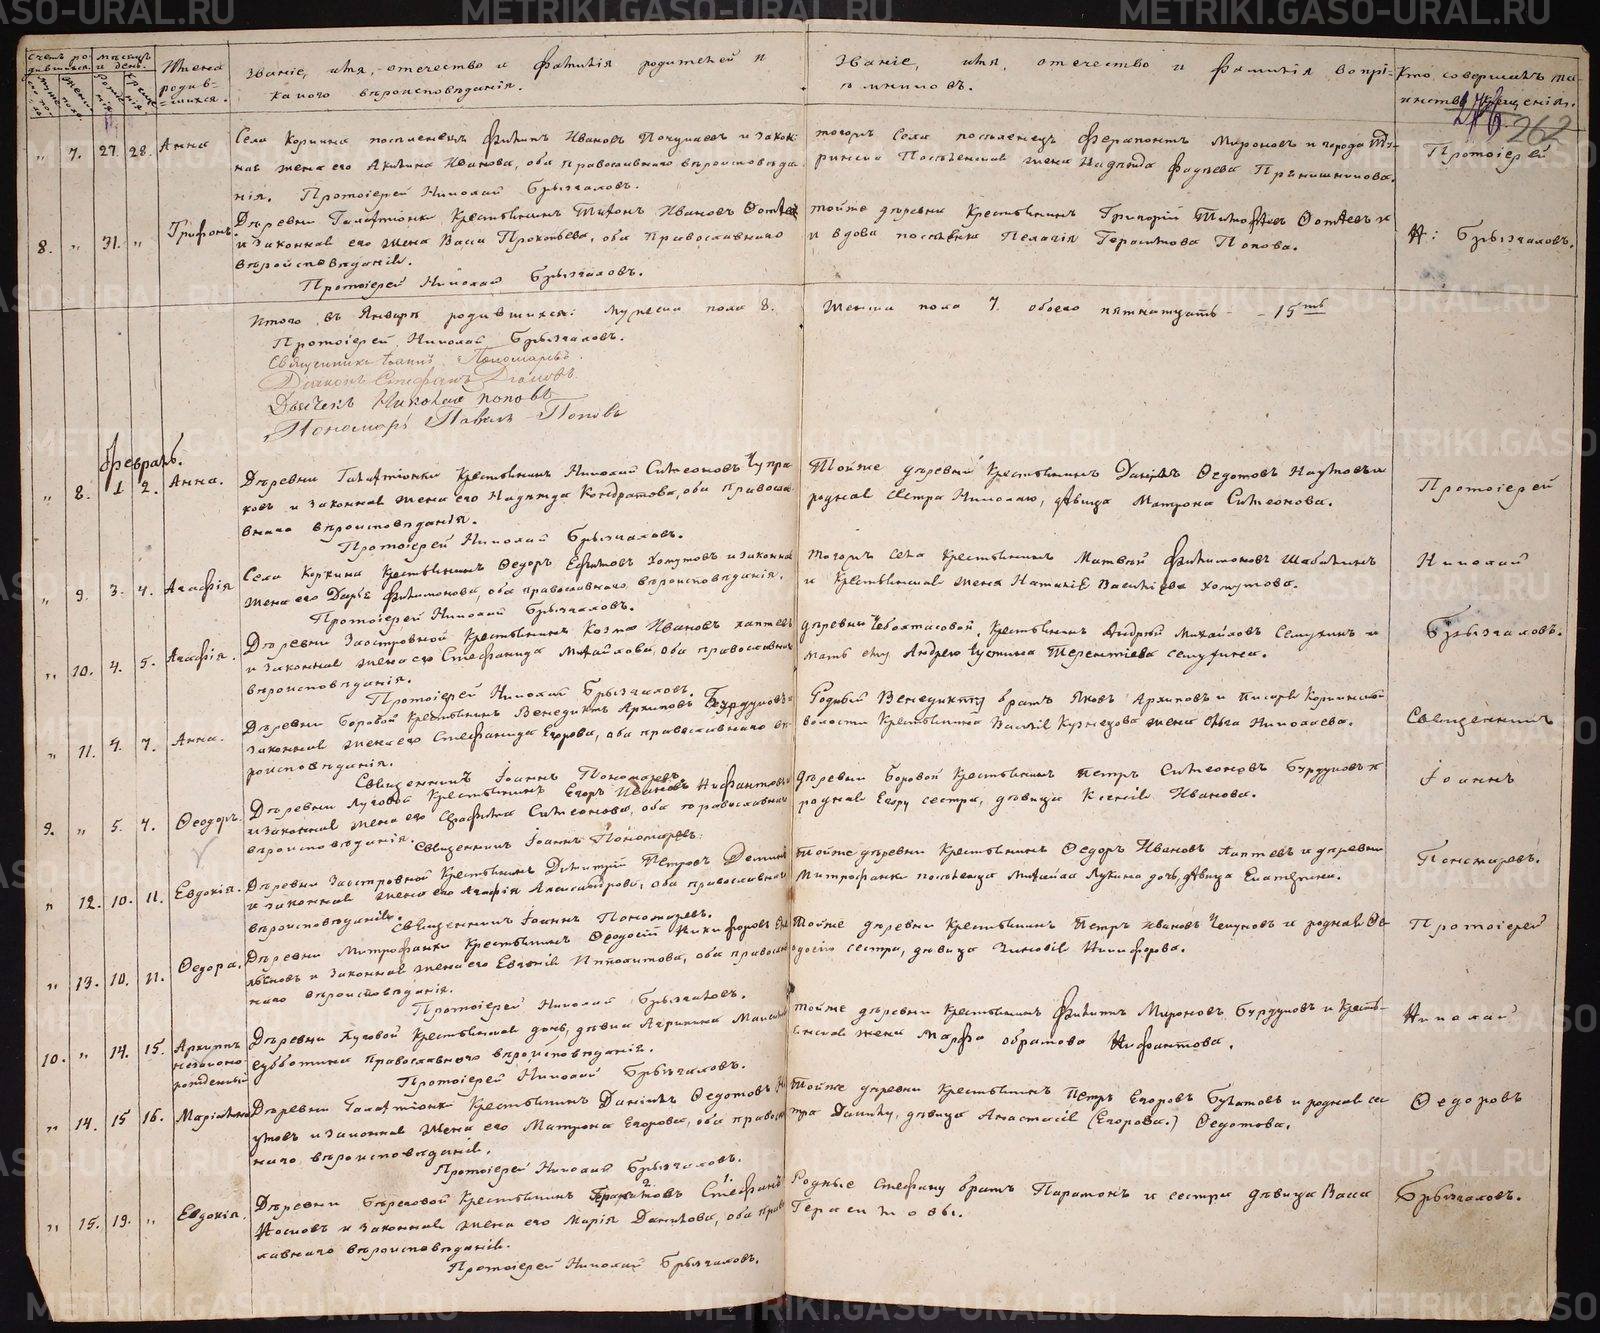 METRIKI.GASO-URAL.RU
Счетъ ро- дившихся. Мѣсяцъ и день. Имена родив- шихся.
Званіе, имя, отечество и фамилія родителей и
какого вѣроисповѣданія.
Званіе, имя, отечество и фамилія воспріе-
мниковъ.
Кто совершалъ та-
инство крещенія.
262
„ 7. 27. 28. Анна
Села Коркина поселенецъ Филипъ Ивановъ и закон-
ная жена его Акилина Иванова, оба православнаго вѣроисповѣда
нія. Протоіерей Николай Брызгаловъ.
тогожъ Села поселенецъ Ферапонтъ Мироновъ и города Ту-
ринска жена Надежда Фадѣева Прянишникова.
Протоіерей
8. „ 31. „ Трифонъ
Деревни Галактіонки Крестьянинъ Тихонъ Ивановъ Фотѣевъ
и законная его жена Васса Прокопьева, оба Православнаго
вѣроисповѣданія.
Протоіерей Николай Брызгаловъ.
тойже деревни Крестьянинъ Григорій Тимофѣевъ Фотѣевъ и
и вдова Пелагія Герасимова Попова.
Н: Брызгаловъ.
Итого въ Январѣ родившихся: мужеска пола 8.
женска пола 7. обоего пятнатцать - - 15ть
Протоіерей Николай Брызгаловъ.
Священникъ Іоаннъ Пономаревъ.
Діаконъ Стефанъ
Дьячекъ Николай Поповъ
Пономарь Павелъ Поповъ
Февраль.
„ 8. 1 2. Анна.
Деревни Галактіонки Крестьянинъ Николай Симеоновъ Чупра
ковъ и законная жена его Надежда Кондратова, оба правосла
внаго вѣроисповѣданія.
Протоіерей Николай Брызгаловъ.
Тойже деревни Крестьянинъ Даніилъ Федотовъ Наумовъ и
родная сестра Николаю, дѣвица Матрона Симеонова.
Протоіерей
„ 9. 3. 4. Агафія
Села Коркина Крестьянинъ Федоръ Ефимовъ Хомутовъ и законна
жена его Дарья Филимонова, оба православнаго вѣроисповѣданія.
Протоіерей Николай Брызгаловъ.
тогожъ села Крестьянинъ Матвей Филимоновъ Шабалинъ
и Крестьянская жена Наталія Васильева Хомутова.
Николай
„ 10. 4. 5. Агафія.
Деревни Заостровной Крестьянинъ Козма Ивановъ Лаптевъ
и законная жена его Стефанида Михайлова, оба православнаго
вѣроисповѣданія.
Протоіерей Николай Брызгаловъ.
деревни Чеболтасовой, Крестьянинъ Андрей Михайловъ Семухинъ и
мать ему Андрею Іустина Терентіева Семухина.
Брызгаловъ.
„ 11. 4. 7. Анна.
Деревни Боровой Крестьянинъ Венедиктъ Архиповъ Бурдуковъ и
законная жена его Стефанида Егорова, оба православнаго вѣ-
роисповѣданія.
Священникъ Іоаннъ Пономаревъ.
Родный Венедикту братъ Яковъ Архиповъ и писаря Коркинской
волости Крестьянина Василія Кузнецова жена Ольга Николаева.
Священникъ
9. „ 5. 7. Феодоръ.
Деревни Луговой Крестьянинъ Егоръ Ивановъ Нифантовъ
и законная жена его Серафима Симеонова, оба православнаго
вѣроисповѣданія. Священникъ Іоаннъ Пономаревъ.
деревни Боровой Крестьянинъ Петръ Симеоновъ Бурдуковъ и
родная Егору сестра, дѣвица Ксенія Иванова.
Іоаннъ
„ 12. 10. 11. Евдокія.
Деревни Заостровной Крестьянинъ Димитрій Петровъ
и законная жена его Агафія Александрова, оба православнаго
вѣроисповѣданія.
Священникъ Іоаннъ Пономаревъ.
Тойже деревни Крестьянинъ Федоръ Ивановъ Лаптевъ и деревни
Митрофанки поселенца Михаила Лукина дочь, дѣвица Екатерина.
Пономаревъ.
„ 13. 10. 11. Федора.
Деревни Митрофанки Крестьянинъ Феодосій Никифоровъ
и законная жена его Евгенія Ипполитова, оба правосла
наго вѣроисповѣданія.
Протоіерей Николай Брызгаловъ.
тойже деревни Крестьянинъ Петръ Ивановъ и родная Фе
одосію сестра, дѣвица Зиновія Никифорова.
Протоіерей
10. „ 14. 15. Архиппъ незаконо рожденный
Деревни Луговой Крестьянская дочь, дѣвка Агрипина
Субботина православнаго вѣроисповѣданія.
Протоіерей Николай Брызгаловъ.
тойже деревни Крестьянинъ Филипъ Мироновъ Бурдуковъ и Кресть-
янская жена Марфа Нифантова.
Николай
„ 14. 15 16. Маріамна
Деревни Галактіонки Крестьянинъ Даніилъ Федотовъ На
умовъ и законная жена его Матрона Егорова, оба правосла
наго вѣроисповѣданія.
Протоіерей Николай Брызгаловъ.
тойже деревни Крестьянинъ Петръ Егоровъ Булатовъ и родная се
тра Даниилу, дѣвица Анастасія (Егорова.) Федотова.
Федоровъ
„ 15. 19. „ Евдокія.
Деревни Береговой Крестьянинъ Герасимовъ Стефанъ
и законная жена его Марія Данилова, оба право
лавнаго вѣроисповѣданія.
Протоіерей Николай Брызгаловъ.
Родные Стефану братъ Парамонъ и сестра дѣвица Васса
Герасимовы.
Брызгаловъ.